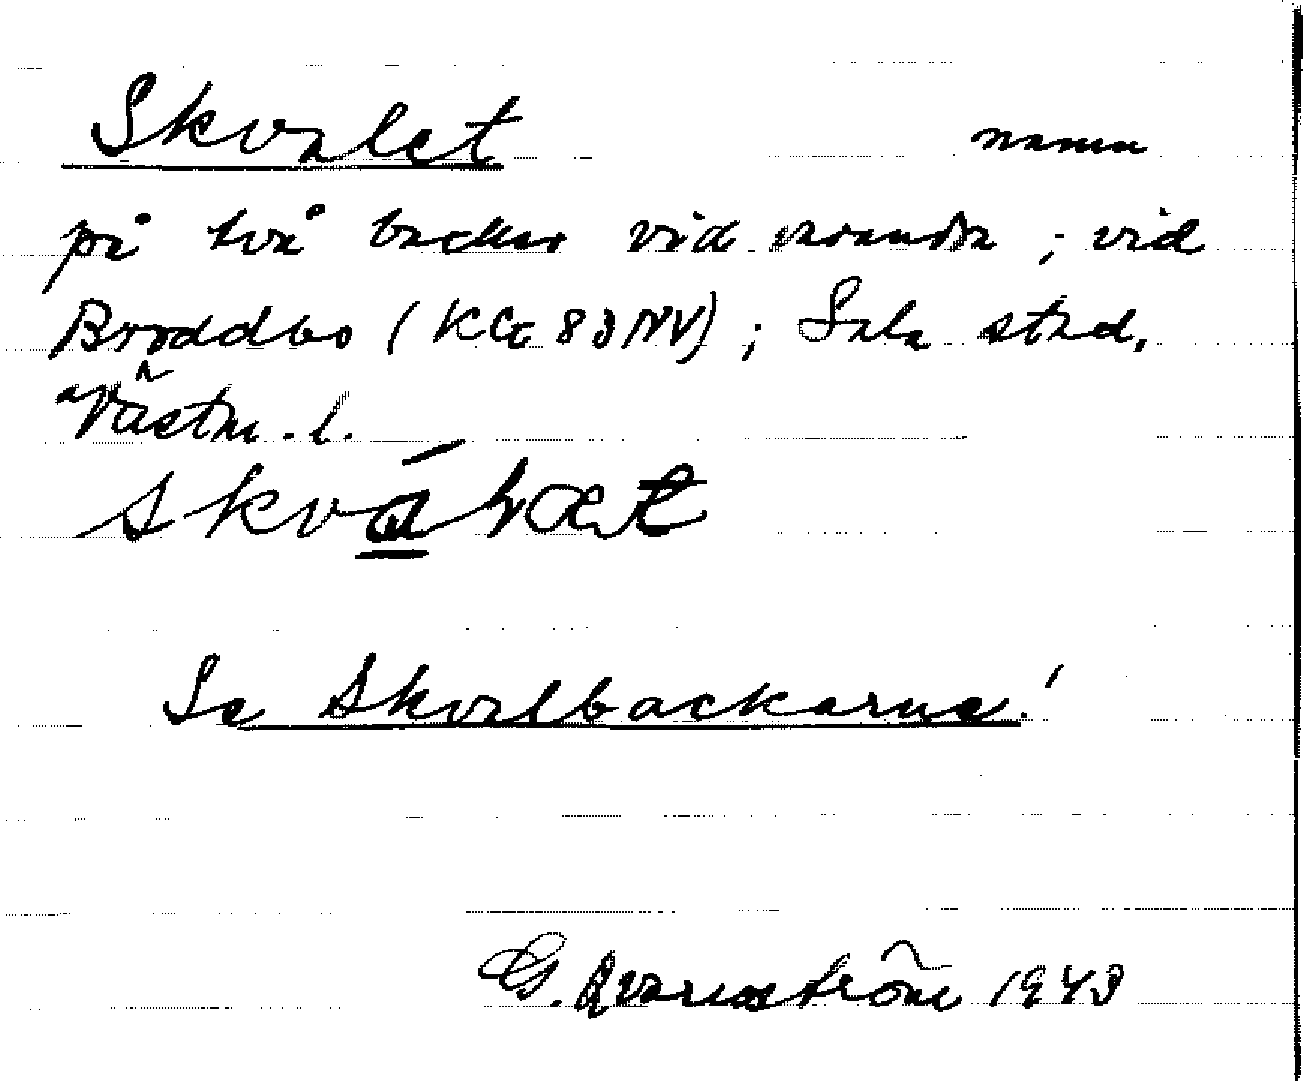 Skvalet namn
på två backar vid varandra; vid
Broddbo (KCG 83 NV); Sala stad,
Västm. l.
skválæt
Se Skvalbackarna!
G. Qvarnström 1943